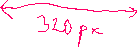 320 px